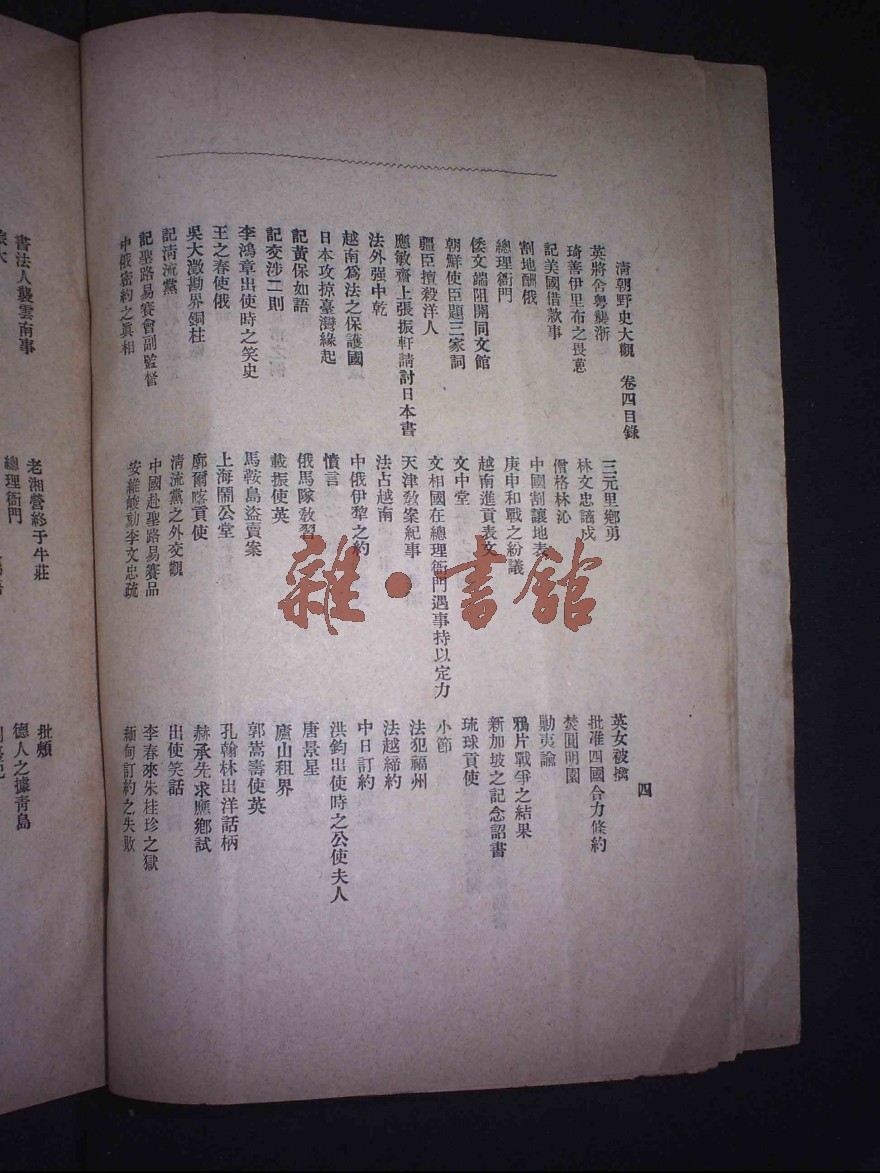 清朝野史大觀 卷四目錄
四
英將舍粵襲浙
三元里鄉勇
英女被擒
琦善伊里布之畏葸
林文忠謫戍
批准四國合力條約
記美國借款事
僧格林沁
焚圓明園
割地酬俄
中國割讓地表
勦夷諭
總理衙門
庚申和戰之紛議
鴉片戰爭之結果
倭文端阻開同文館
越南進貢表文
新加坡之記念詔書
朝鮮使臣題三家詞
文中堂
琉球貢使
疆臣擅殺洋人
文相國在總理衙門遇事持以定力
小節
應敏齋上張振軒請討日本書
天津教案紀事
法犯福州
法外强中乾
法占越南
法越締約
越南爲法之保護國
中俄伊犂之約
中日訂約
日本攻掠臺灣緣起
憤言
洪鈞出使時之公使夫人
記黃保如語
俄馬隊教習
唐景星
記交涉二則
載振使英
廬山租界
李鴻章出使時之笑史
馬鞍島盜賣案
郭嵩燾使英
王之春使俄
上海鬧公堂
孔翰林出洋話柄
吳大澂勘界銅柱
廓爾喀貢使
赫承先求應鄉試
記淸流黨
淸流黨之外交觀
出使笑話
記聖路易賽會副監督
中國赴聖路易賽品
李春來朱桂珍之獄
中俄密約之眞相
安維峻劾李文忠疏
緬甸訂約之失敗
書法人襲雲南事
老湘營終于牛莊
批頰
總理衙門
德人之據靑島
雜·書館